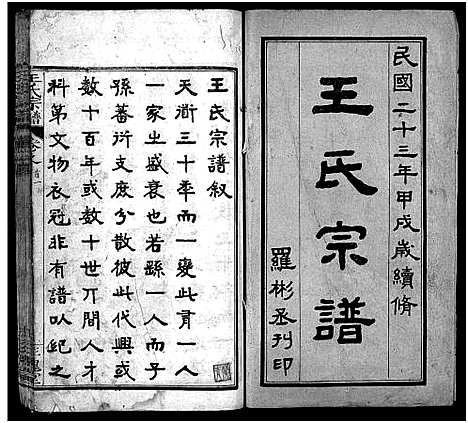 民國二十三年甲戌歲續脩
王氏宗譜
羅彬丞刊印
王氏宗譜叙
天道三十年而一變此胷一人
一家之盛衰也若繇一人而子
孫蕃衍支庶分散彼此代興或
數十百年或數十世丌間人才
科第文物衣冠非有譜以紀之
王氏宗譜